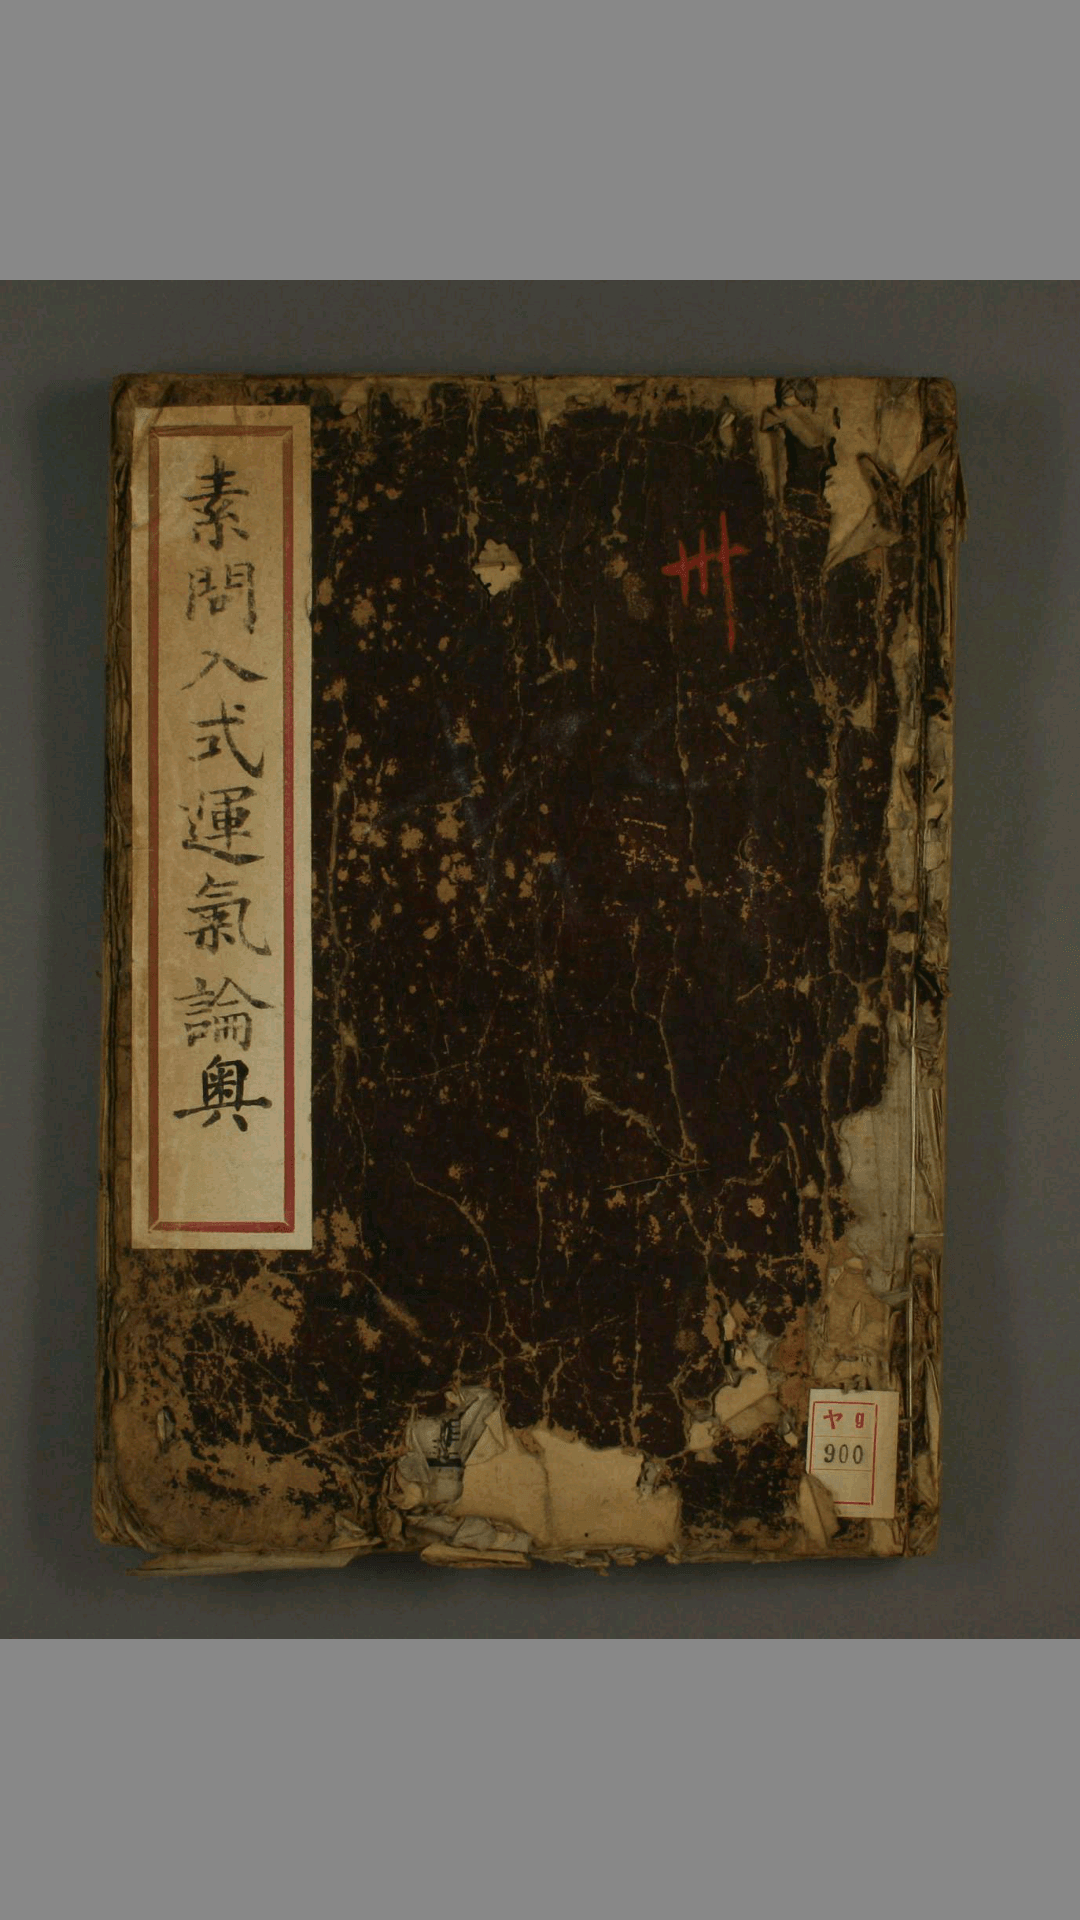 素問入式運氣論奥
卅
ヤ9
900